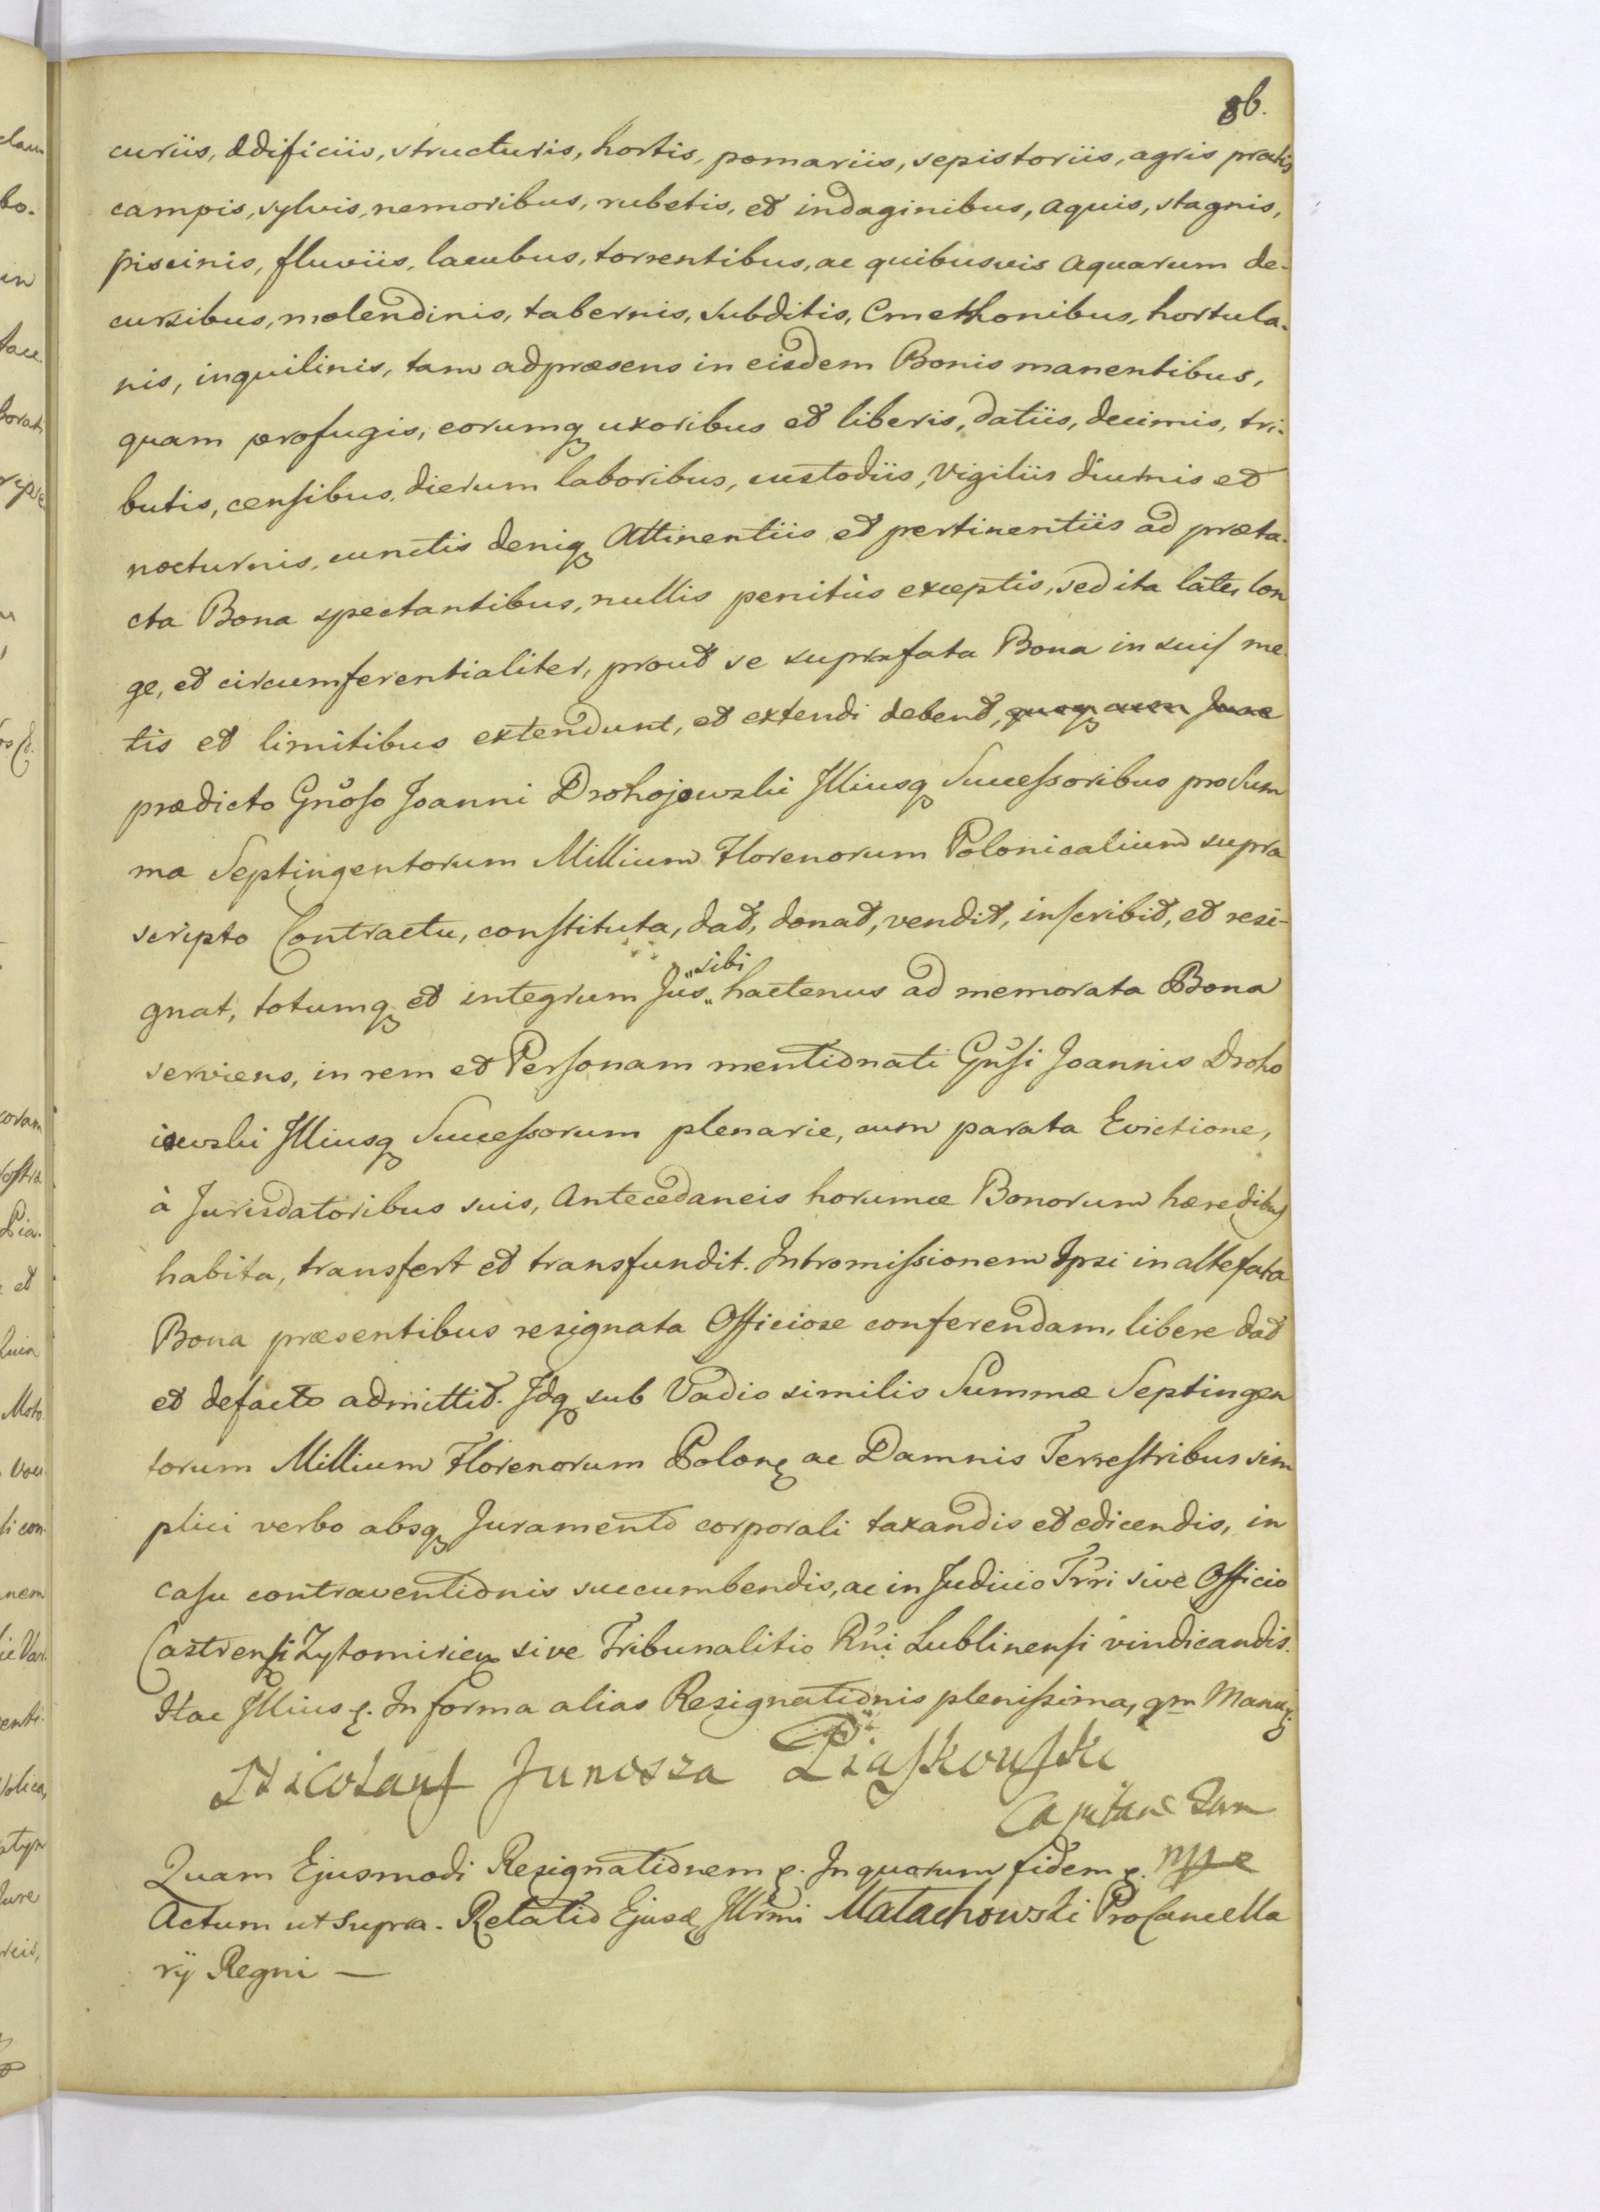 86.
curiis, ædificiis, structuris, hortis, pomariis, sepistoriis, agris pratis
campis, sylvis, nemoribus, rubetis, et indaginibus, aquis, stagnis,
piscinis, fluviis, lacubus, torrentibus, ac quibusvis aquarum de-
cursibus, molendinis, tabernis, subditis, Cmethonibus, hortula-
nis, inquilinis, tam adpræsens in eisdem Bonis manentibus,
quam profugis, eorumq uxoribus et liberis, datiis, decimis, tri-
butis, censibus, dierum laboribus, custodiis, Vigiliis diurnis et
nocturnis, cunctis deniq Attinentiis et pertinentiis ad præta-
cta Bona spectantibus, nullis penitùs exceptis, sed ita late, lon
ge, et circumferentialiter, prout se suprafata Bona in suis me
tis et limitibus extendunt, et extendi debent,
prædicto Gnoso Joanni Drohojowski Illiusq Successoribus pro Sum
ma Septingentorum Millium Florenorum Polonicalium supra
scripto Contractu, constituta, dat, donat, vendit, inscribit, et resi-
gnat, totumq et integrum Jus "sibi hactenus ad memorata Bona
serviens, in rem et Personam mentionati Gnsi Joannis Droho
iewski Illiusq Successorum plenarie, cum parata Evictione,
à Jurisdatoribus suis, Antecedaneis horumce Bonorum hæredibus
habita, transfert et transfundit. Intromissionem Ipsi in altefata
Bona præsentibus resignata Officiose conferendam, libere dat
et defacto admittit. Idq sub Vadio similis Summæ Septingen
torum Millium Florenorum Polon ac Damnis Terrestribus sim
plici verbo absq Juramento corporali taxandis et edicendis, in
casu contraventionis succumbendis, ac in Judicio Trri sive Officio
Castrensi Zytomirien sive Tribunalitio Rni Lublinensi vindicandis.
Hac Illius . In forma alias Resignationis plenissima, qm Manu
Nicolaus Junosza Piaskowski
Capitane Tam
mpe
Quam Ejusmodi Resignationem . In quorum fidem .
Actum ut supra. Relatio Ejusd Illrmi Małachowski ProCancella
rij Regni —